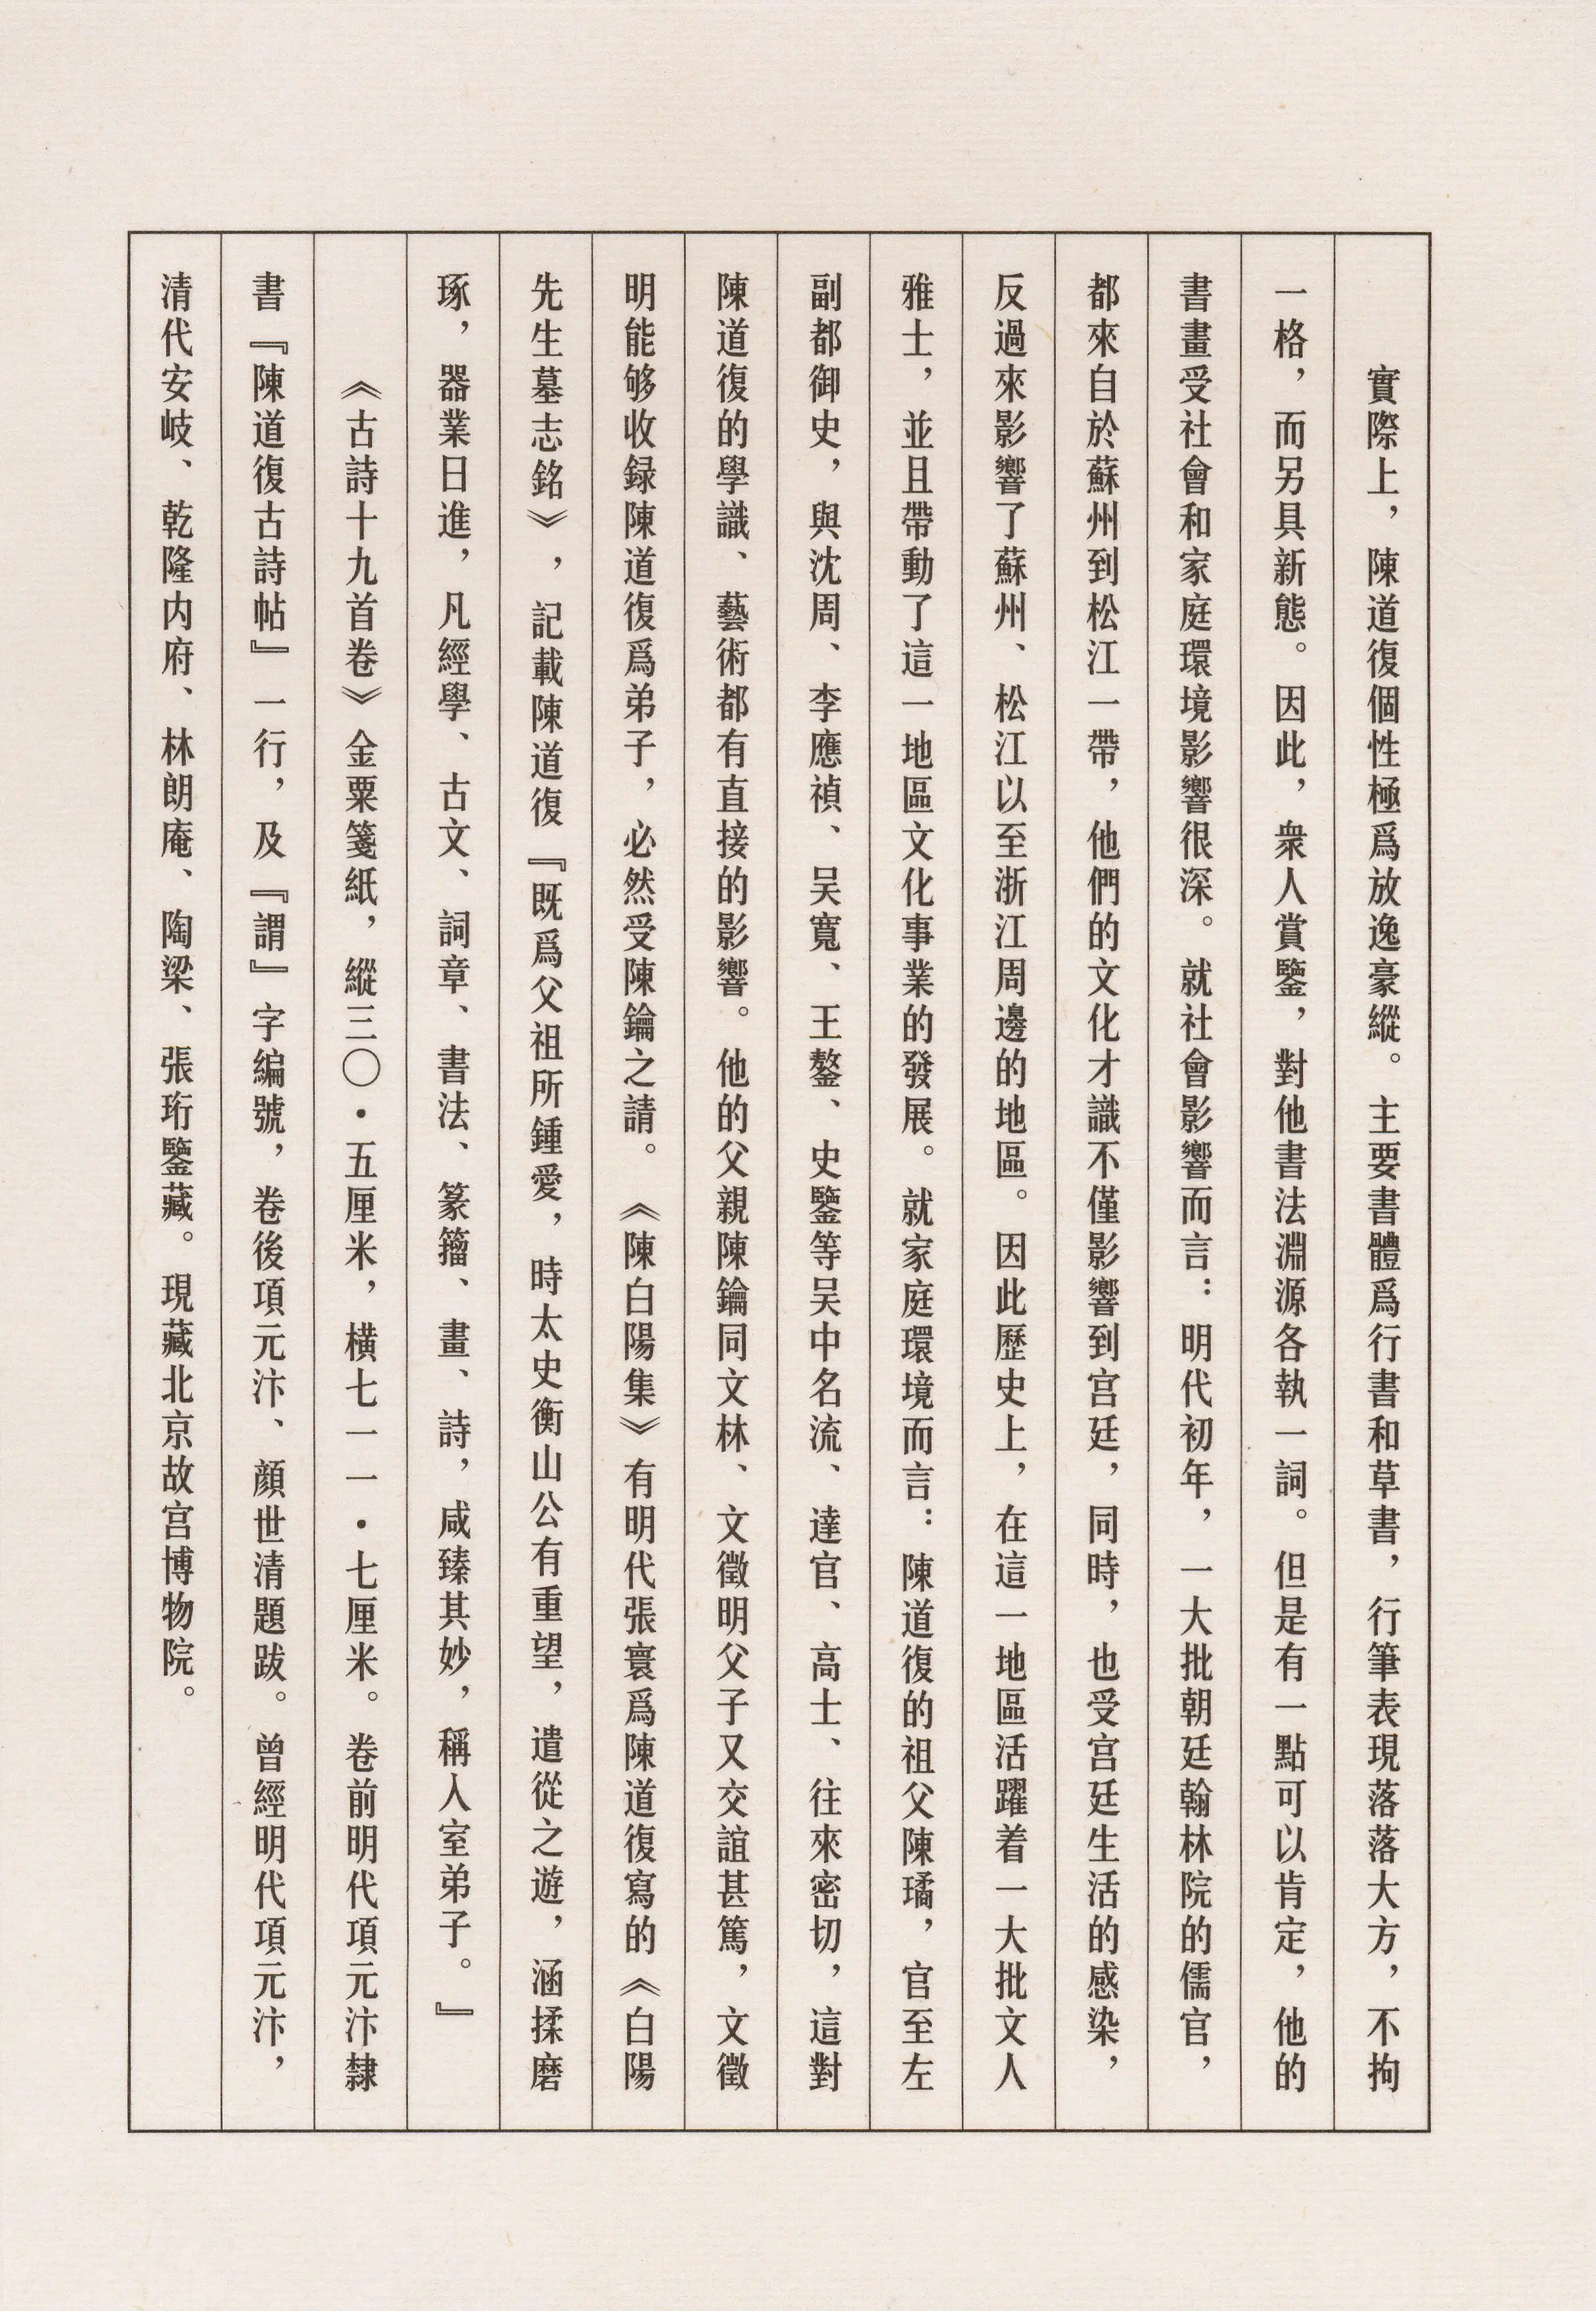 實際上，陳道復個性極爲放逸豪縱。主要書體爲行書和草書，行筆表現落落大方，不拘
一格，而另具新態。因此，衆人賞鑒，對他書法淵源各執一詞。但是有一點可以肯定，他的
書畫受社會和家庭環境影響很深。就社會影響而言：明代初年，一大批朝廷翰林院的儒官，
都來自於蘇州到松江一帶，他們的文化才識不僅影響到宫廷，同時，也受宫廷生活的感染，
反過來影響了蘇州、松江以至浙江周邊的地區。因此歷史上，在這一地區活躍着一大批文人
雅士，並且帶動了這一地區文化事業的發展。就家庭環境而言：陳道復的祖父陳璚，官至左
副都御史，與沈周、李應禎、吴寬、王鏊、史鑒等吴中名流、達官、高士、往來密切，這對
陳道復的學識、藝術都有直接的影響。他的父親陳鑰同文林、文徵明父子又交誼甚篤，文徵
明能够收録陳道復爲弟子，必然受陳鑰之請。《陳白陽集》有明代張寰爲陳道復寫的《白陽
先生墓志銘》，記載陳道復『既爲父祖所鍾愛，時太史衡山公有重望，遣從之遊，涵揉磨
琢，器業日進，凡經學、古文、詞章、書法、篆籀、畫、詩，咸臻其妙，稱入室弟子。』
《古詩十九首卷》金粟箋紙，縱三〇·五厘米，横七一一·七厘米。卷前明代項元汴隸
書『陳道復古詩帖』一行，及『謂』字編號，卷後項元汴、顔世清題跋。曾經明代項元汴，
清代安岐、乾隆内府、林朗庵、陶梁、張珩鑒藏。現藏北京故宫博物院。